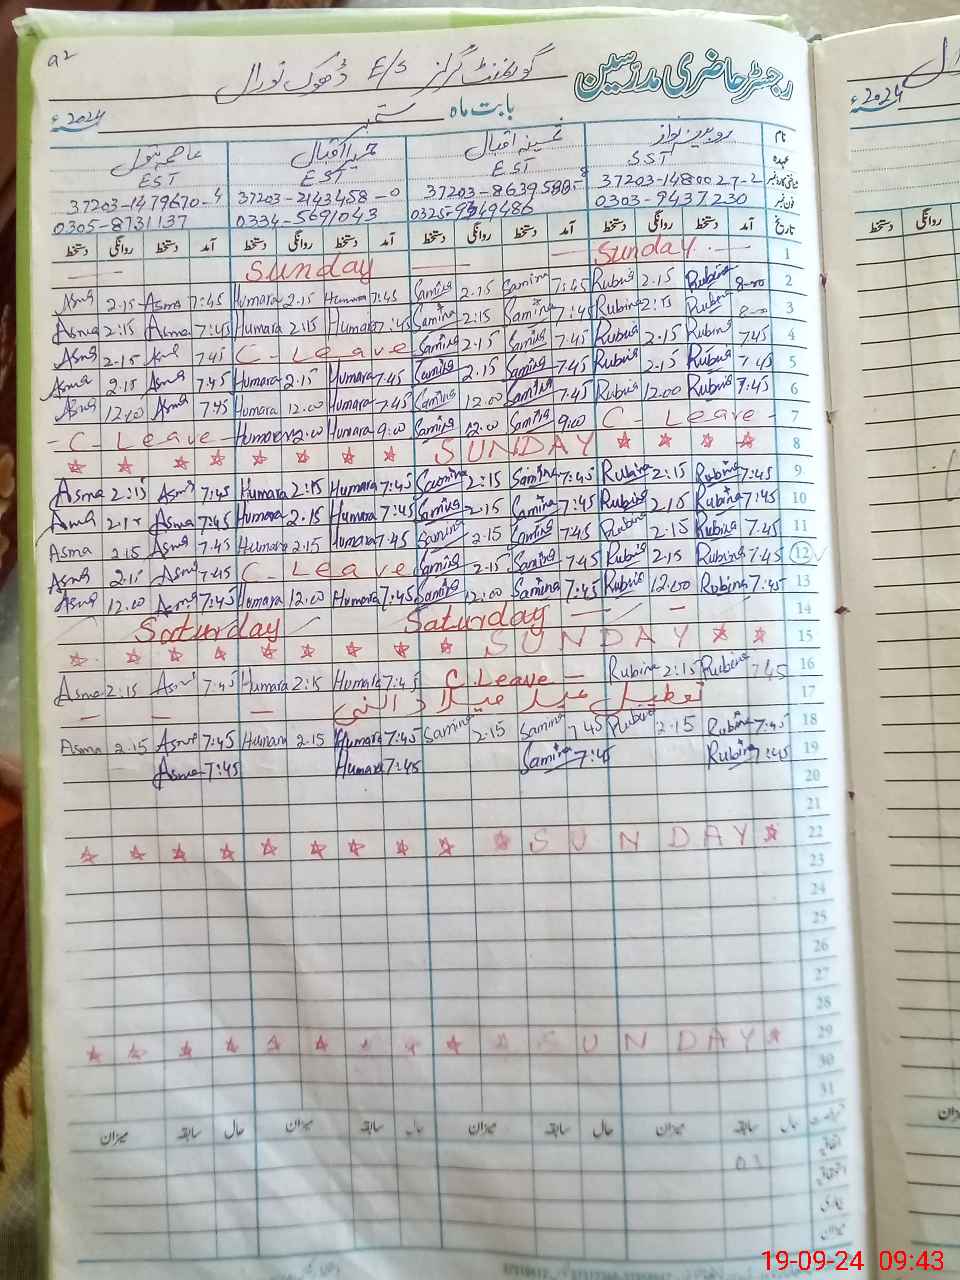 a2
رجسٹر حاضری مدرسین گورنمنٹ گرلز E/S ڈھوک نورال
بابت ماہ ستمبر 2024ء
نام روبینہ نواز ثمینہ اقبال حمیرا اقبال عاصمہ بتول
عہدہ SST EST EST EST
37203-1480027-2 37203-8639588-8 37203-2143458-0 37203-1479670-4
فون نمبر 0303-9437230 0334-5691043 0305-8731137
تاریخ آمد دستخط روانگی دستخط آمد دستخط روانگی دستخط آمد دستخط روانگی دستخط آمد دستخط روانگی دستخط
Sunday Sunday 1
Asma 2.15 Asma 7:45 Humara 2.15 Humara 7:45 Samina 2.15 Samina 7:45 Rubina 2.15 Rubina 8-00 2
Asma 2:15 Asma 7:45 Humara 2:15 Humara 7:45 Samina 2:15 Samina 7:45 Rubina 2:15 Rubina 8-00 3
Asma 2.15 Asma 7.45 C- Leave Samina 2.15 Samina 7.45 Rubina 2.15 Rubina 7.45 4
Asma 2.15 Asma 7.45 Humara 2.15 Humara 7.45 Samina 2.15 Samina 7.45 Rubina 2.15 Rubina 7.45 5
Asma 12.00 Asma 7.45 Humara 12.00 Humara 7.45 Samina 12.00 Samina 7.45 Rubina 12.00 Rubina 7.45 6
- C- Leave - Humara 12.00 Humara 9.00 Samina 12.00 Samina 9.00 C- Leave - 7
SUNDAY 8
Asma 2:15 Asma 7:45 Humara 2:15 Humara 7:45 Samina 2:15 Samina 7:45 Rubina 2:15 Rubina 7:45 9
Asma 2.15 Asma 7:45 Humara 2.15 Humara 7:45 Samina 2.15 Samina 7:45 Rubina 2.15 Rubina 7:45 10
Asma 2.15 Asma 7.45 Humara 2.15 Humara 7.45 Samina 2.15 Samina 7.45 Rubina 2.15 Rubina 7.45 11
Asma 2.15 Asma 7.45 C- Leave Samina 2.15 Samina 7.45 Rubina 2.15 Rubina 7.45 12
Asma 12.00 Asma 7:45 Humara 12.00 Humara 7:45 Samina 12:00 Samina 7:45 Rubina 12.00 Rubina 7:45 13
Saturday Saturday 14
SUNDAY 15
Asma 2:15 Asma 7:45 Humara 2:15 Humara 7:45 C Leave - Rubina 2:15 Rubina 7:45 16
تعطیل عید میلاد النبی 17
Asma 2.15 Asma 7:45 Humara 2.15 Humara 7:45 Samina 2.15 Samina 7:45 Rubina 2.15 Rubina 7:45 18
Asma 7:45 Humara 7:45 Samina 7:45 Rubina 7:45 19
20
21
SUNDAY 22
23
24
25
26
27
28
SUNDAY 29
30
31
حال سابقہ میزان حال سابقہ میزان حال سابقہ میزان حال سابقہ میزان
میزان
2024ء
دستخط روانگی
19-09-24 09:43